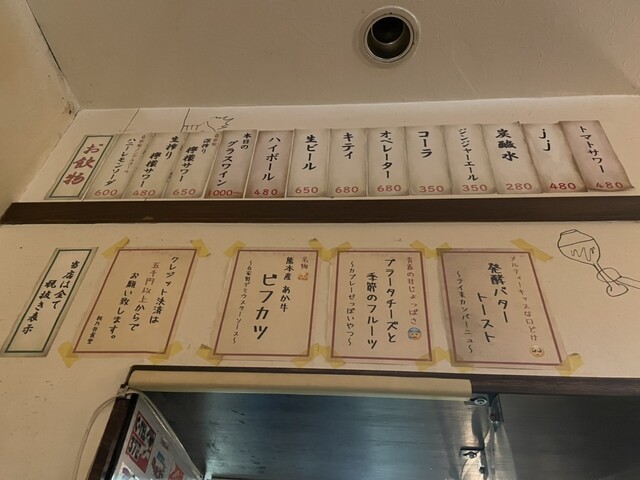 トマトサワー
480
jj
480
炭酸水
280
ジンジャーエール
350
コーラ
350
オペレーター
680
キティ
680
生ビール
650
ハイボール
480
本日の
グラスワイン
1000〜
生搾り
檸檬サワー
650
檸檬サワー
480
ハニーレモンソーダ
600
お飲物
メルティーキッスな口どけ
発酵バター
トースト
〜ライ麦カンパーニュ〜
青春の甘じょっぱさ
ブラータチーズと
季節のフルーツ
〜カプレーぜっぽいやつ〜
名物
熊本産 あか牛
ビフカツ
クレジット決済は
五千円以上からで
お願い致します。
当店は全て
税抜き表示